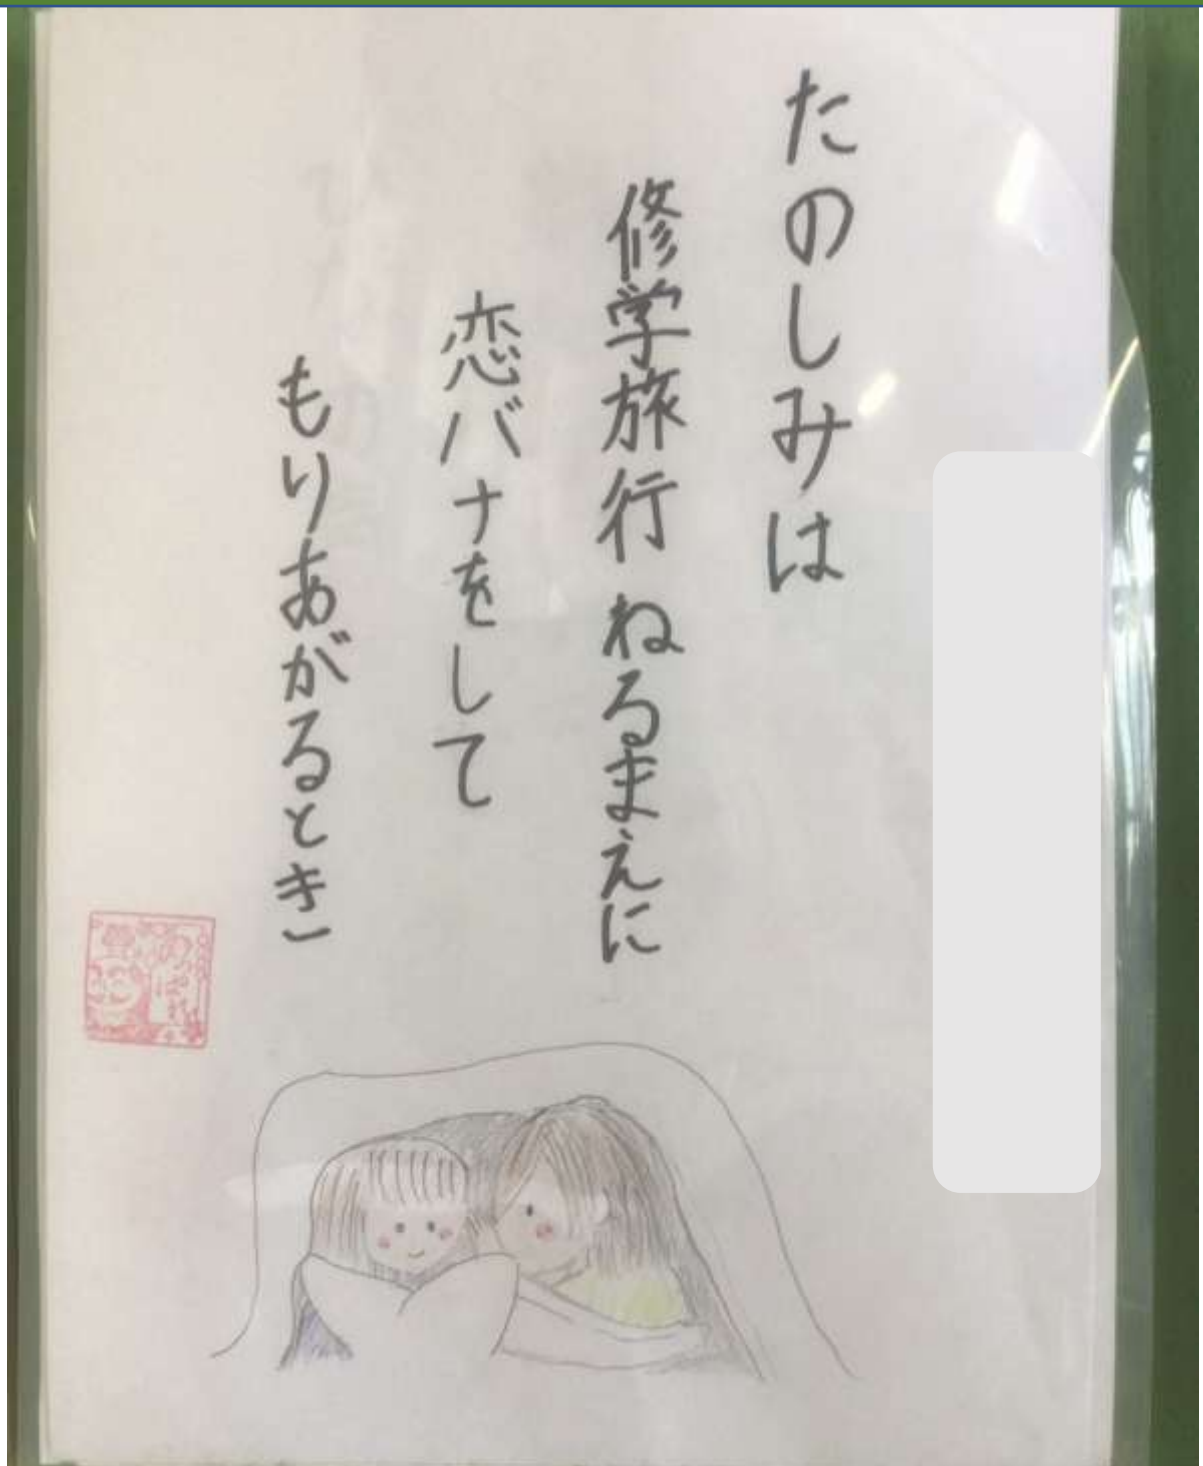 たのしみは
修学旅行 ねるまえに
恋バナをして
もりあがるとき
あっぱれ